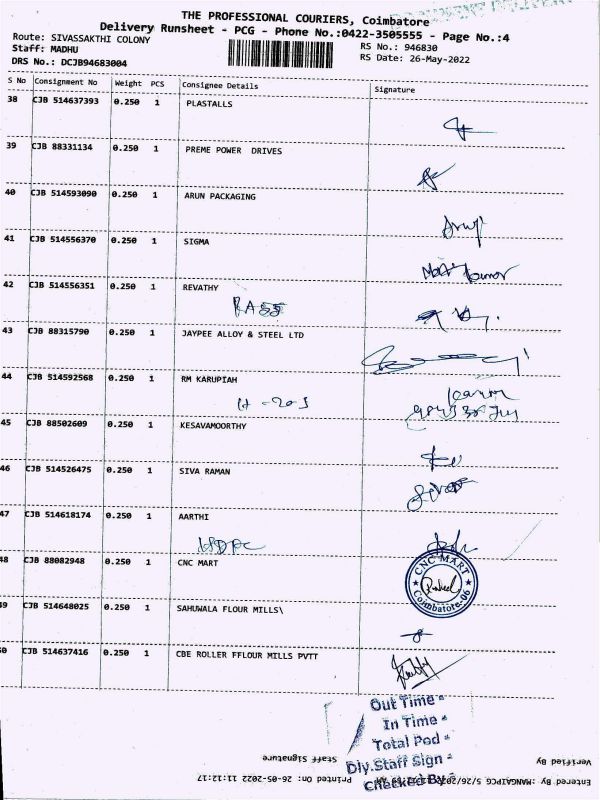 THE PROFESSIONAL COURIERS, Coimbatore
Delivery Runsheet - PCG - Phone No.:0422-3505555 - Page No.:4
Route: SIVASSAKTHI COLONY RS No.: 946830
Staff: MADHU RS Date: 26-May-2022
DRS No.: DCJB94683004
S No Consignment No Weight PCS Consignee Details Signature
38 CJB 514637393 0.250 1 PLASTALLS
39 CJB 88331134 0.250 1 PREME POWER DRIVES
40 CJB 514593090 0.250 1 ARUN PACKAGING
41 CJB 514556370 0.250 1 SIGMA
42 CJB 514556351 0.250 1 REVATHY
43 CJB 88315790 0.250 1 JAYPEE ALLOY & STEEL LTD
44 CJB 514592568 0.250 1 RM KARUPIAH
45 CJB 88502609 0.250 1 KESAVAMOORTHY
46 CJB 514526475 0.250 1 SIVA RAMAN
47 CJB 514618174 0.250 1 AARTHI
48 CJB 88082948 0.250 1 CNC MART
CNC MART
Coimbatore-06
49 CJB 514648025 0.250 1 SAHUWALA FLOUR MILLS\
50 CJB 514637416 0.250 1 CBE ROLLER FFLOUR MILLS PVTT
Out Time -
In Time -
Total Pod -
Dly.Staff Sign -
Checked By -
Staff Signature
Verified By
Printed On: 26-05-2022 11:12:17
Entered By :MANGAIPCG